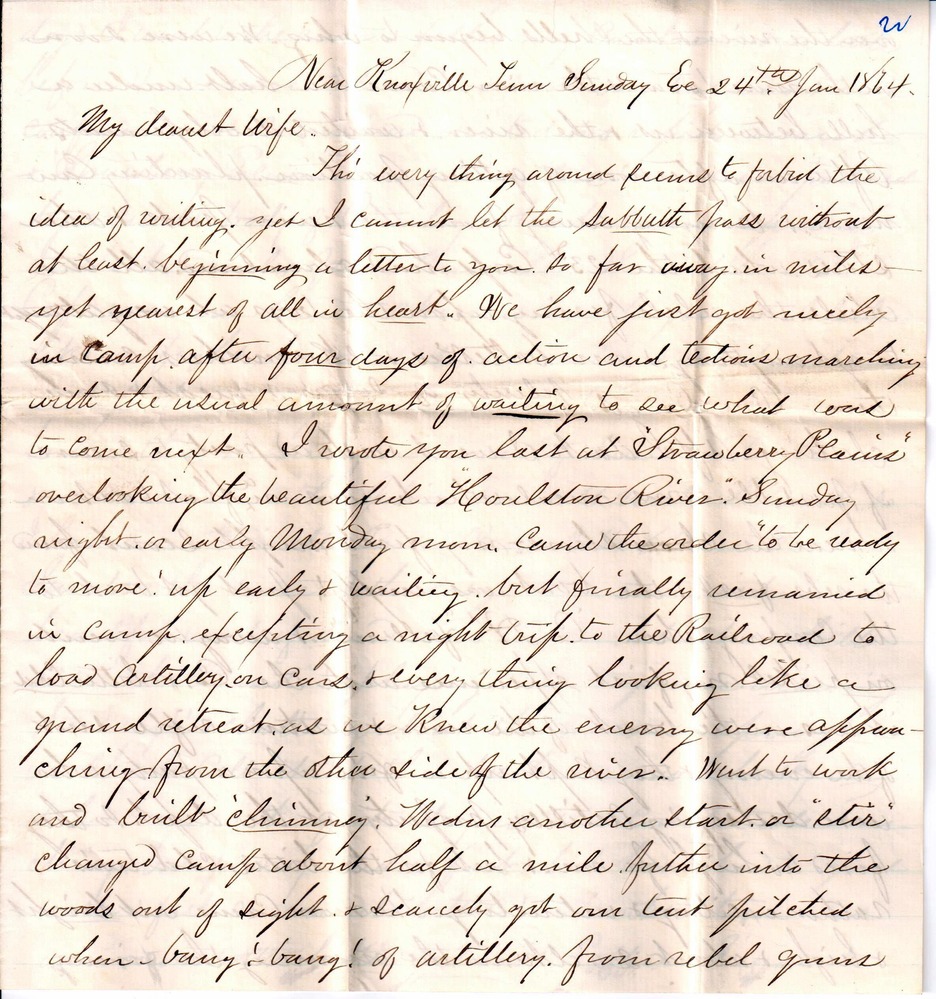 Near Knoxville Tenn Sunday Eve 24th Jan 1864.
My dearest Wife.
Tho' every thing around seems to forbid the
idea of writing. yet I cannot let the Sabbath pass without
at least. beginning a letter to you. so far away. in miles
yet nearest of all in heart. We have just got nicely
in camp after four days of action and tedious marching
with the usual amount of waiting to see what was
to come next. I wrote you last at "Strawberry Plains"
overlooking the beautiful "Houlston River". Sunday
night. or early Monday morn. Came the order "to be ready
to move! up early & waiting. but finally remained
in camp. excepting a night trip. to the Railroad to
load Artillery on cars. & every thing looking like a
grand retreat. as we knew the enemy were approa-
ching from the other side of the river. Went to work
and built chimney. Wednes another start. or "stir"
changed camp about half a mile further into the
woods out of sight. & scarcely got our tent pitched
when bang! bang! of artillery. from rebel guns